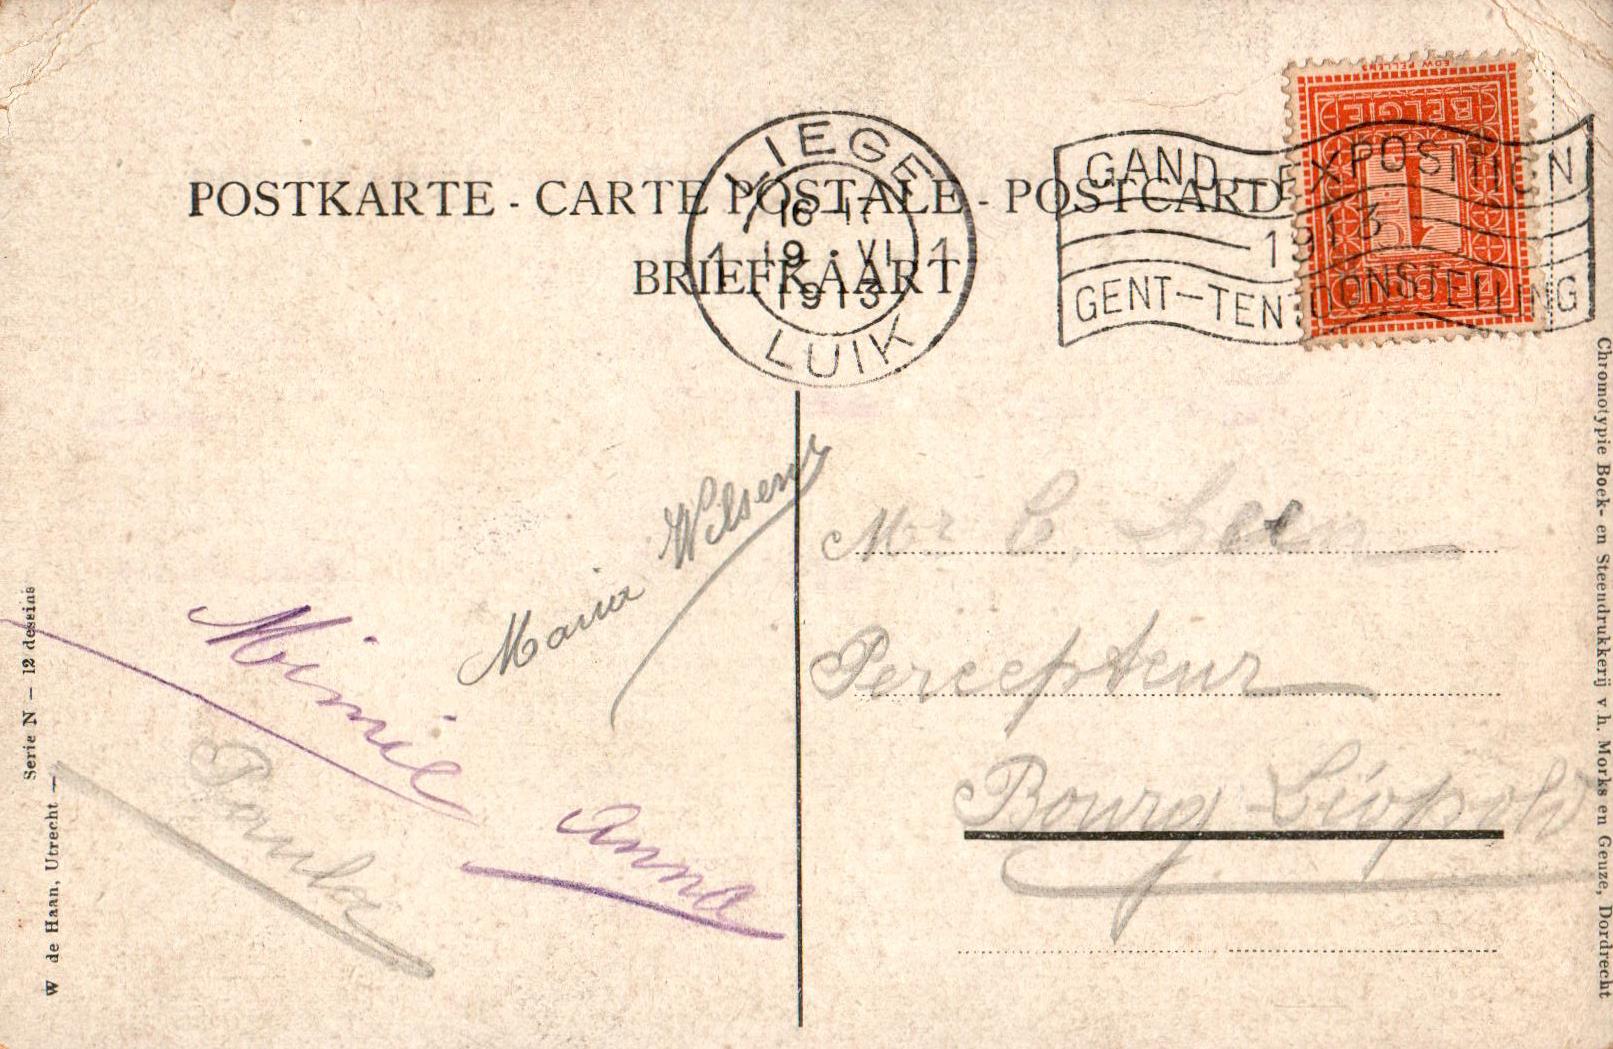 POSTKARTE - CARTE POSTALE - POSTCARD
BRIEFKAART
LIEGE
16-17
1 19 · VI 1
1913
LUIK
GAND-EXPOSITION
1913
GENT-TENTOONSTELLING
EDW PELLENS
BELGIE
1
Maria Wilsens
Mimie
Paula
Anna
Mr C. Leen
Percepteur
Bourg-Léopold
Serie N – 12 dessins
W de Haan, Utrecht –
Chromotypie Boek- en Steendrukkerij v h. Morks en Geuze, Dordrecht